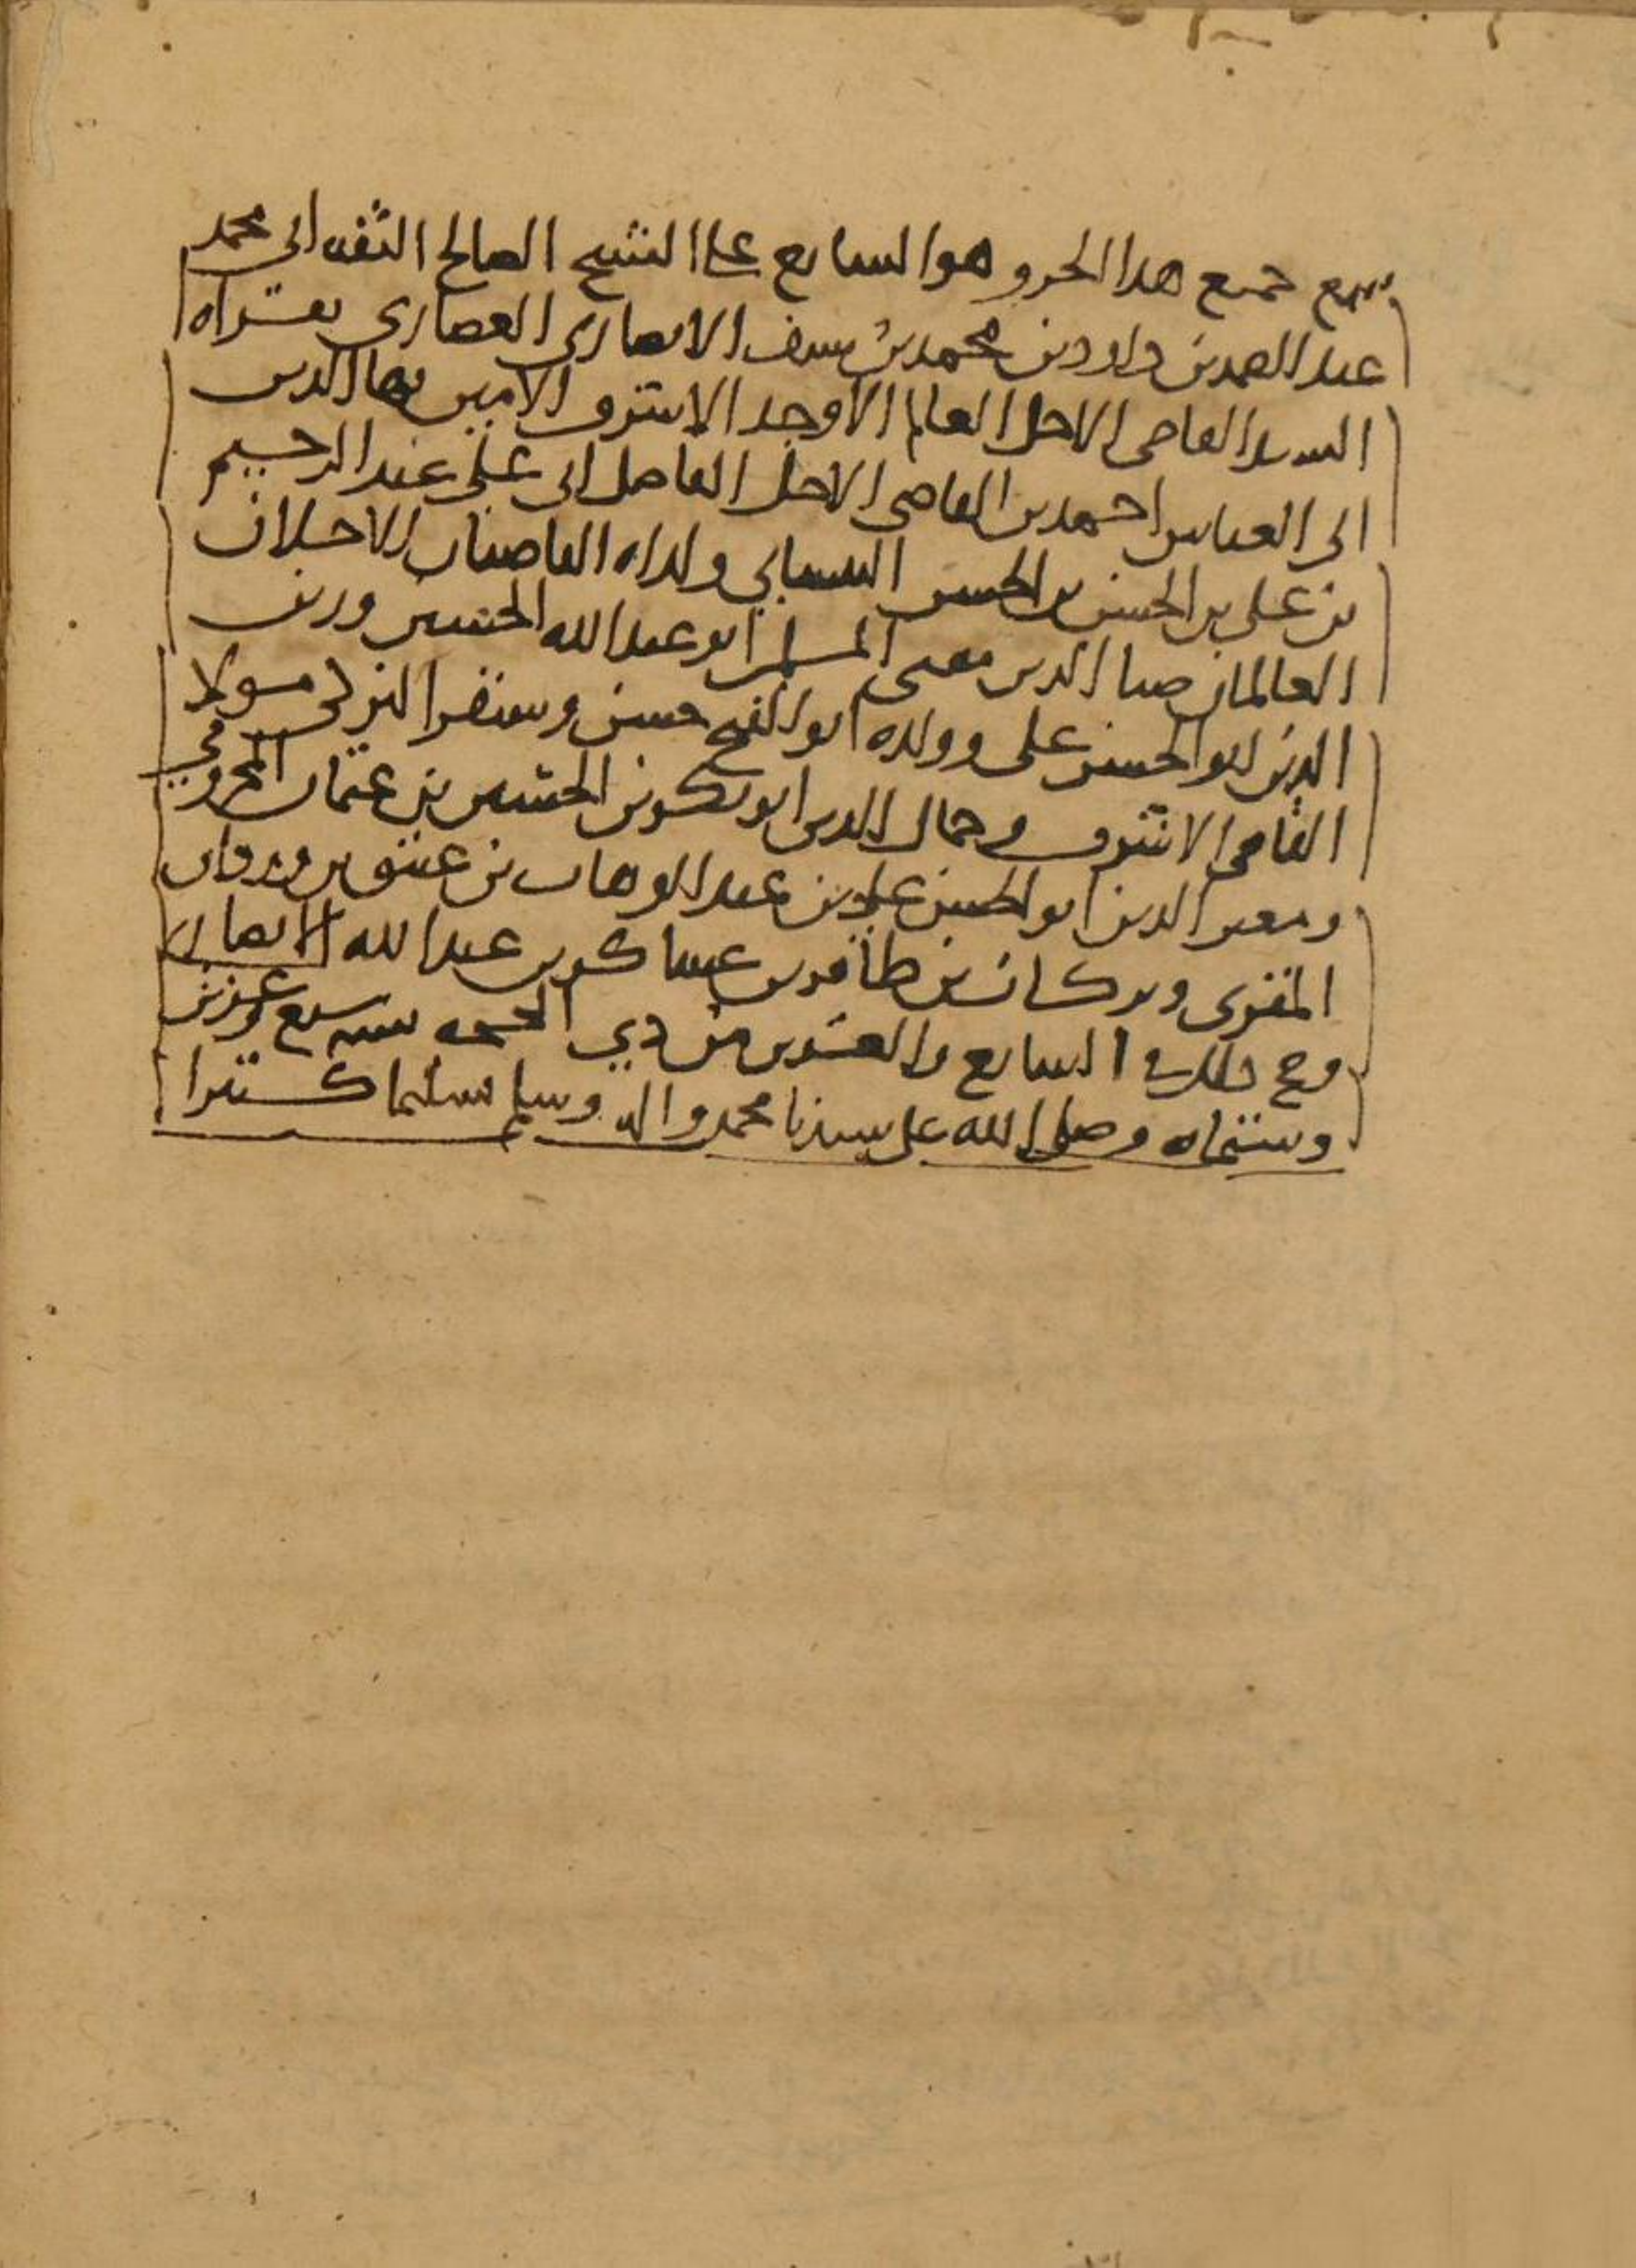 سمع جميع هذا الجزو وهو السابع على الشيخ الصالح الثقه ابي محمد
عبد الصمد بن داود بن محمد بن سيف الانصاري الغضاري بقراه
السيد القاضي الاجل العالم الاوحد الاشرف الامين بها الدين
ابي العباس احمد بن القاضي الاجل الفاضل ابي علي عبد الرحيم
بن علي بن الحسن بن الحسن البيساني ولداه القاضيان الاجلان
العالمان ضيا الدين مفتي المسلمين ابو عبد الله الحسين وزين
الدين ابو الحسن علي وولده ابو الفتح حسن وسنقر التركي مولا
القاضي الاشرف وجمال الدين ابو بكر بن الحسين بن عثمان المخزومي
ومعين الدين ابو الحسن علي بن عبد الوهاب بن عتيق بن وردان
المقري وبركات بن ظافر بن عساكر بن عبد الله الانصاري
وصح ذلك في السابع والعشرين من ذي الحجه سنه سبع وعشرين
وستماه وصلى الله على سيدنا محمد واله وسلم تسليما كثيرا